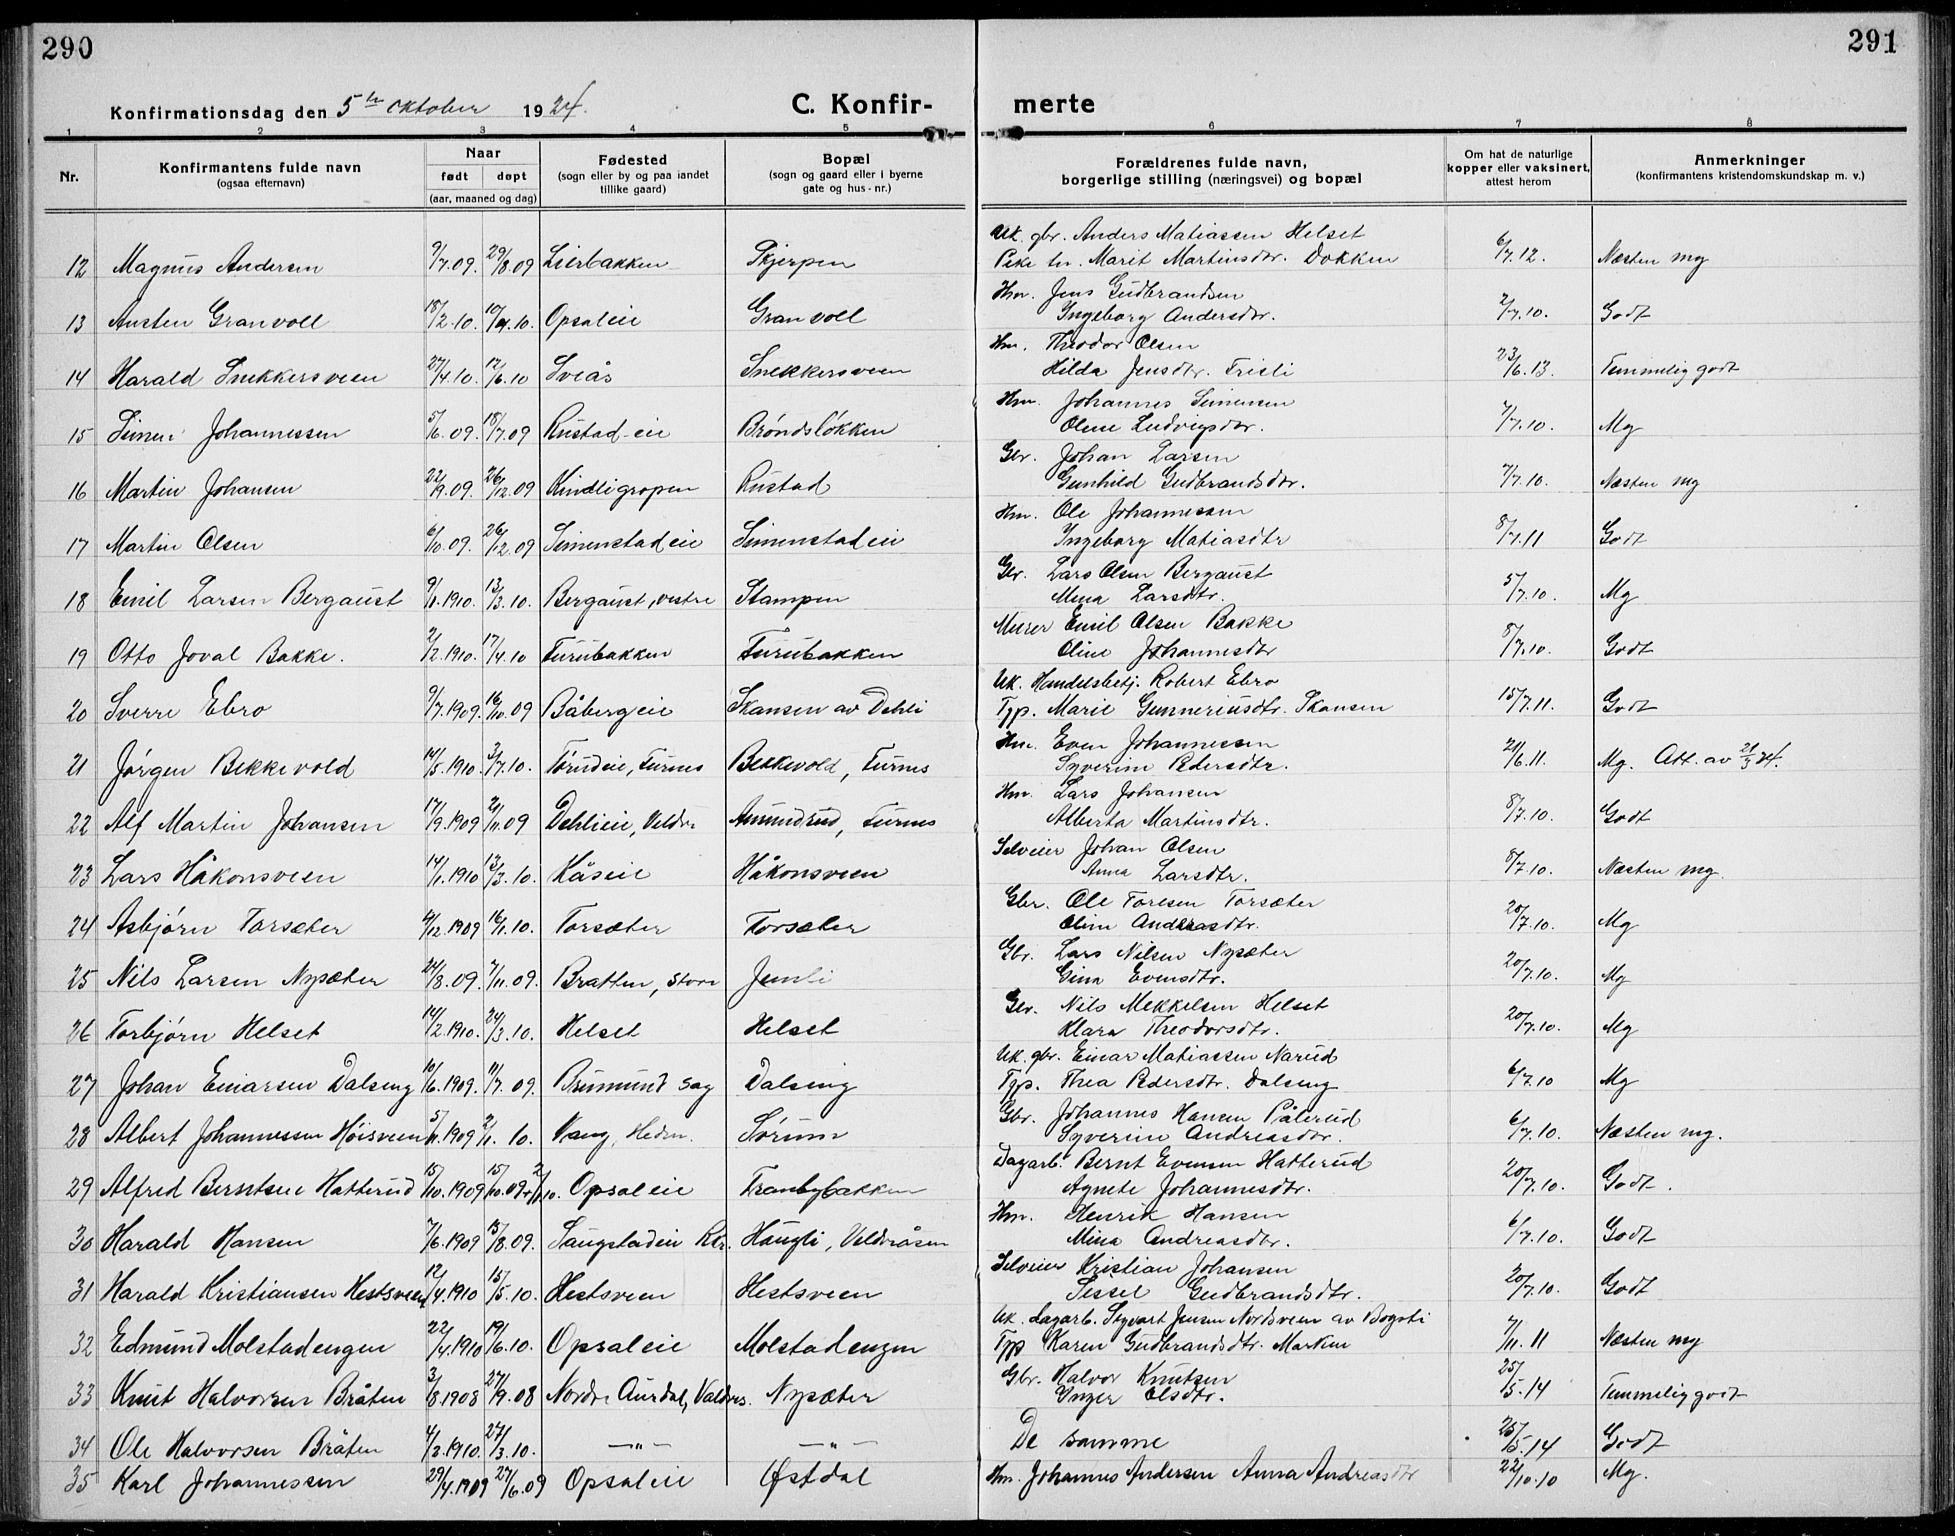 290
291
Konfirmationsdag den 5te oktober 1924.
C. Konfir-
merte
1 2 3 4 5 6 7 8
Nr.
Konfirmantens fulde navn
(ogsaa efternavn)
Naar
født døpt
(aar, maaned og dag)
Fødested
(sogn eller by og paa landet
tillike gaard)
Bopæl
(sogn og gaard eller i byerne
gate og hus-nr.)
Forældrenes fulde navn,
borgerlige stilling (næringsvei) og bopæl
Om hat de naturlige
kopper eller vaksinert,
attest herom
Anmerkninger
(konfirmantens kristendomskundskap m. v.)
Uk. gbr. Anders Matiassen Helset
12 Magnus Andersen 9/7.09. 29/8.09 Lierbakken Skjerpen Pike tn. Marit Martinsdtr. Dokken 6/7.12. Næsten mg
Hm. Jens Gudbrandsen
13 Austen Granvoll 18/2.10. 17/4.10. Opsaleie Granvoll Ingeborg Andersdtr. 2/7.10. Godt
Hm. Theodor Olsen
14 Harald Snekkersveen 27/4.10. 12/6.10 Sveås Snekkersveen Hilda Jensdtr. Fristi 23/6.13. Temmelig godt
Hm. Johannes Simensen
15 Simen Johannessen 5/6.09. 18/7.09 Rustad-eie Brøndsløkken Oline Ludvigsdtr. 7/7.10. Mg
Gbr. Johan Larsen
16 Martin Johansen 22/9.09. 26/12.09 Kindligropen Rustad Gunhild Gudbrandsdtr. 7/7.10. Næsten mg
Hm. Ole Johannessen
17 Martin Olsen 6/10.09. 26/12.09 Simenstadeie Simenstadeie Ingeborg Matiasdtr 8/7.11 Godt
Gbr. Lars Olsen Bergaust
18 Emil Larsen Bergaust 9/1.1910. 13/3.10. Bergaust, vestre Stampen Mina Larsdtr. 5/7.10. Mg
Murer Emil Olsen Bakke
19 Otto Joval Bakke. 2/2.1910. 17/4.10 Furubakken Furubakken Oline Johannesdtr 8/7.10. Godt
Uk. Handelsbetj. Robert Ebro
20 Sverre Ebro 9/7.1909. 16/10.09 Båbergeie Skansen av Dehli Typ. Marie Gunneriusdtr. Skansen 15/7.11. Godt
Hm. Even Johannessen
21 Jørgen Bekkevold 14/5.1910. 3/7.10. Tørudeie, Furnes Bekkevold, Furnes Syverine Pedersdtr. 21/6.11. Mg. Att. av 21/3 24.
Hm. Lars Johansen
22 Alf Martin Johansen 17/9.1909 21/11.09 Dehlieie, Veldre Amundrud, Furnes Alberta Martinsdtr. 8/7.10. Godt
Selveier Johan Olsen
23 Lars Håkonsveen 14/1.1910 13/3.10. Kåseie Håkonsveen Anna Larsdtr. 8/7.10. Næsten mg.
Gbr. Ole Toresen Torsæter
24 Asbjørn Torsæter 4/12.1909 16/1.10. Torsæter Torsæter Oline Andreasdtr. 20/7.10. Mg
Gbr. Lars Nilsen Nysæter
25 Nils Larsen Nysæter 24/8.09. 7/11.09. Bratten, store Jemli Gina Evensdtr. 20/7.10. Mg
Gbr. Nils Mekkelsen Helset
26 Torbjørn Helset 14/2.1910. 24/3.10. Helset Helset Klara Theodorsdtr. 20/7.10. Mg
Uk. gbr. Einar Matiassen Narud
27 Johan Einarsen Dalseng 10/6.1909. 11/7.09. Brumund sag Dalseng Typ. Thea Pedersdtr. Dalseng 6/7.10 Mg
Gbr. Johannes Hansen Pålerud
28 Albert Johannessen Høisveen 5/11.1909 2/1.10. Vang, Hedm. Sørum Syverine Andreasdtr. 6/7.10. Næsten mg.
Dagarb. Bernt Evensen Hatterud
29 Alfred Berntsen Hatterud 15/10.1909 15/10.09. 2/1.10. Opsaleie Tranbybakken Agnete Johannesdtr. 20/7.10. Godt.
Hm. Henrik Hansen
30 Harald Hansen 7/6.1909 15/8.09. Saugstadeie Rkr. Haugli, Veldreåsen Mina Andreasdtr. 6/7.10. Godt
Selveier Kristian Johansen
31 Harald Kristiansen Hestsveen 12/4.1910 15/5.10. Hestsveen Hestsveen Sissel Gudbrandsdtr. 20/7.10. Godt
Uk. dagarb. Sigvart Jensen Nordsveen av Bogsti
32 Edmund Molstadengen 22/4.1910 19/6.10. Opsaleie Molstadengen Typ Karen Gudbrandsdtr. Marken 7/11.11 Næsten mg
Gbr. Halvor Knutsen
33 Knut Halvorsen Bråten 3/8.1908 27/9.08 Nordre Aurdal, Valdres. Nysæter Inger Olsdtr. 25/5.14 Temmelig godt
34 Ole Halvorsen Bråten 4/2.1910. 27/3.10. —"— —"— De samme 25/5.14 Godt
35 Karl Johannessen 29/4.1909 27/6.09 Opsaleie Østdal Hm. Johannes Andersen Anna Andreasdtr 22/10.10 Mg.